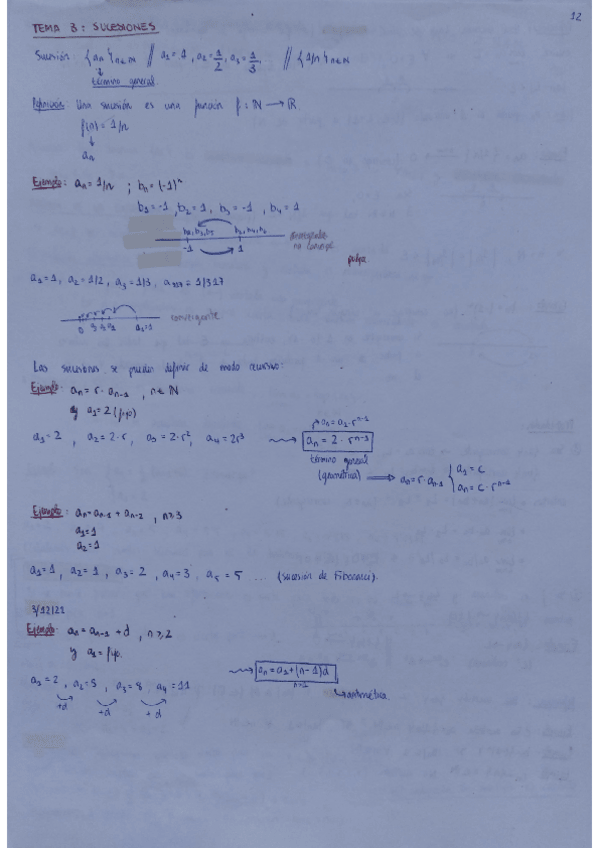 12
TEMA 3: SUCESIONES
Sucesión: {an}n∈ℕ // a1=1, a2=1/2, a3=1/3, // {1/n}n∈ℕ
término general.
Definición: Una sucesión es una función f: ℕ → ℝ
f(n)=1/n
↓
an
Ejemplo: an=1/n ; bn=(-1)^n
b1=-1, b2=1, b3=-1, b4=1
b1, b3, b5
-1 1
no converge
a1=1, a2=1/2, a3=1/3, a317=1/317
0 a1=1 convergente
Las sucesiones se pueden definir de modo recursivo:
Ejemplo: an=r·an-1, n∈ℕ
y a1=2 (fijo)
an=a1·r^n-1
a1=2, a2=2·r, a3=2·r², a4=2r³ ⟿ an=2·r^n-1
término general
(geométrica) ⟹ an=r·an-1 { a1=c
an=c·r^n-1
Ejemplo: an=an-1+an-2, n≥3
a1=1
a2=1
a1=1, a2=1, a3=2, a4=3, a5=5 ... (sucesión de Fibonacci).
3/12/21
Ejemplo: an=an-1+d, n≥2
y a1=fijo.
⟿ an=a1+(n-1)d
n≥1
a1=2, a2=5, a3=8, a4=11
aritmética
+d +d +d